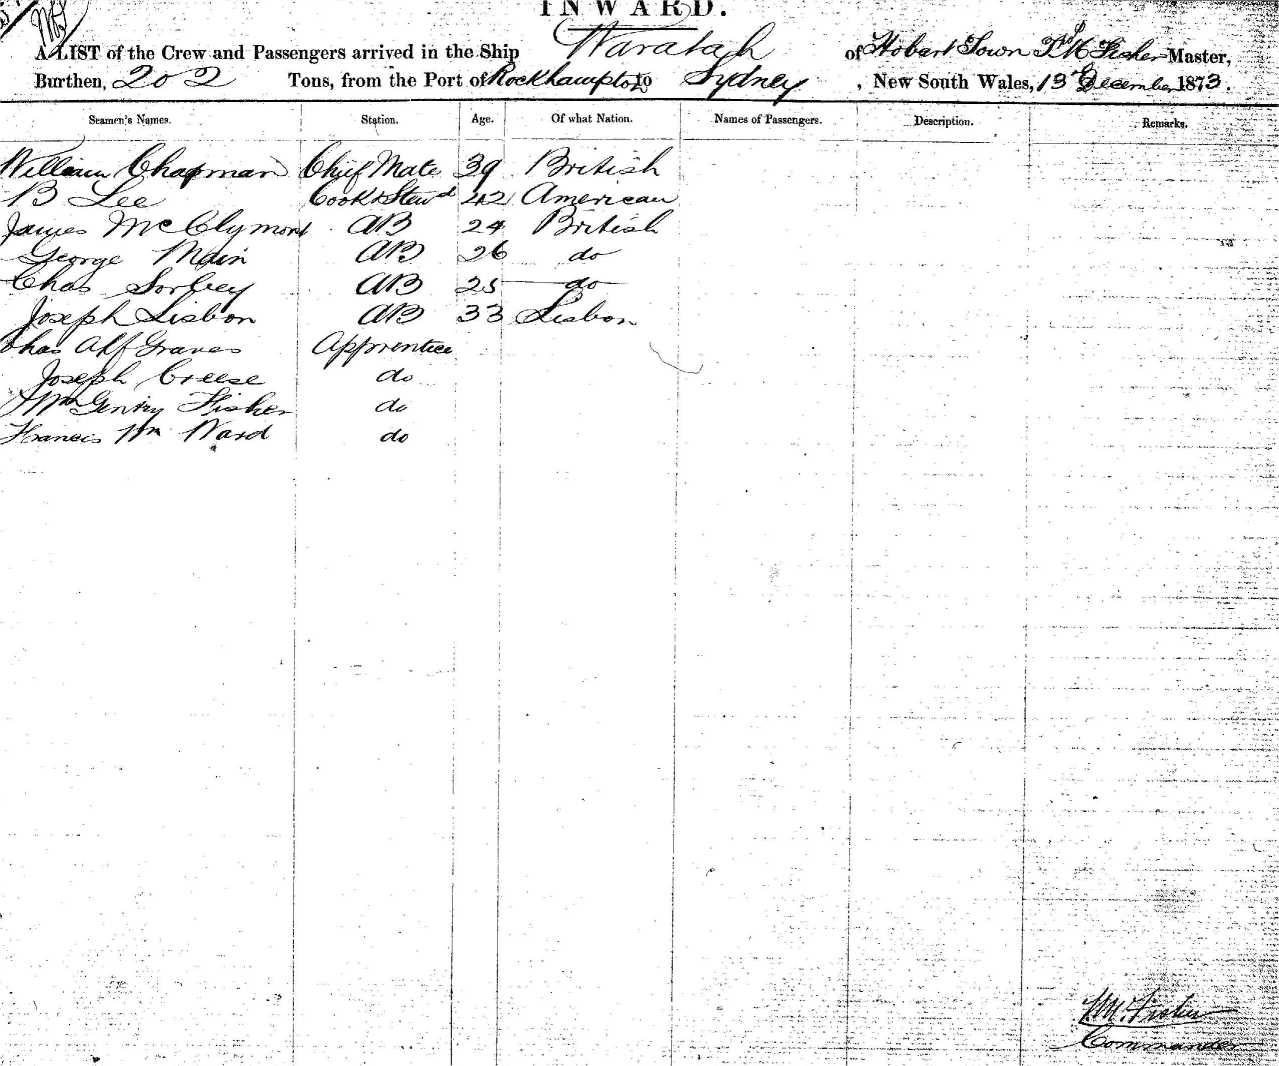 INWARD.
A LIST of the Crew and Passengers arrived in the Ship Waratah of Hobart Town Fisher Master,
Burthen, 202 Tons, from the Port of Rockhampton to Sydney, New South Wales, 13th December 1873.
Seamen's Names. Station. Age. Of what Nation. Names of Passengers. Description. Remarks.
William Chapman Chief Mate 39 British
B Lee Cook & Stewd 42 American
James McClymont AB 24 British
George Main AB 26 do
Chas Sorbey AB 25 do
Joseph Lisbon AB 33 Lisbon
Chas Alf Graves Apprentice
Joseph Creese do
Wm Henry Fisher do
Francis Wm Ward do
Fisher
Commander